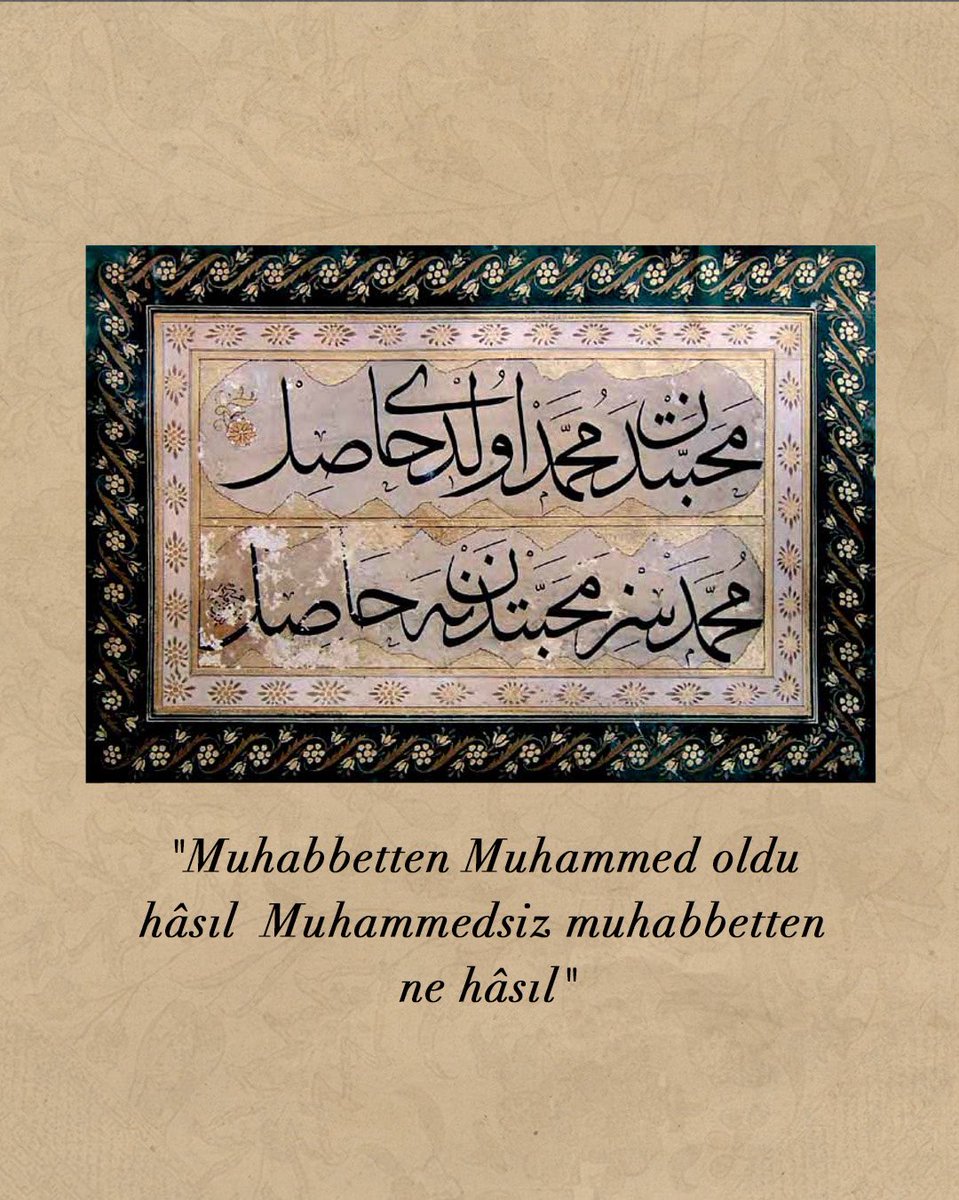 محبتدن محمد اولدی حاصل
محمدسز محبتدن نه حاصل
"Muhabbetten Muhammed oldu
hâsıl Muhammedsiz muhabbetten
ne hâsıl"